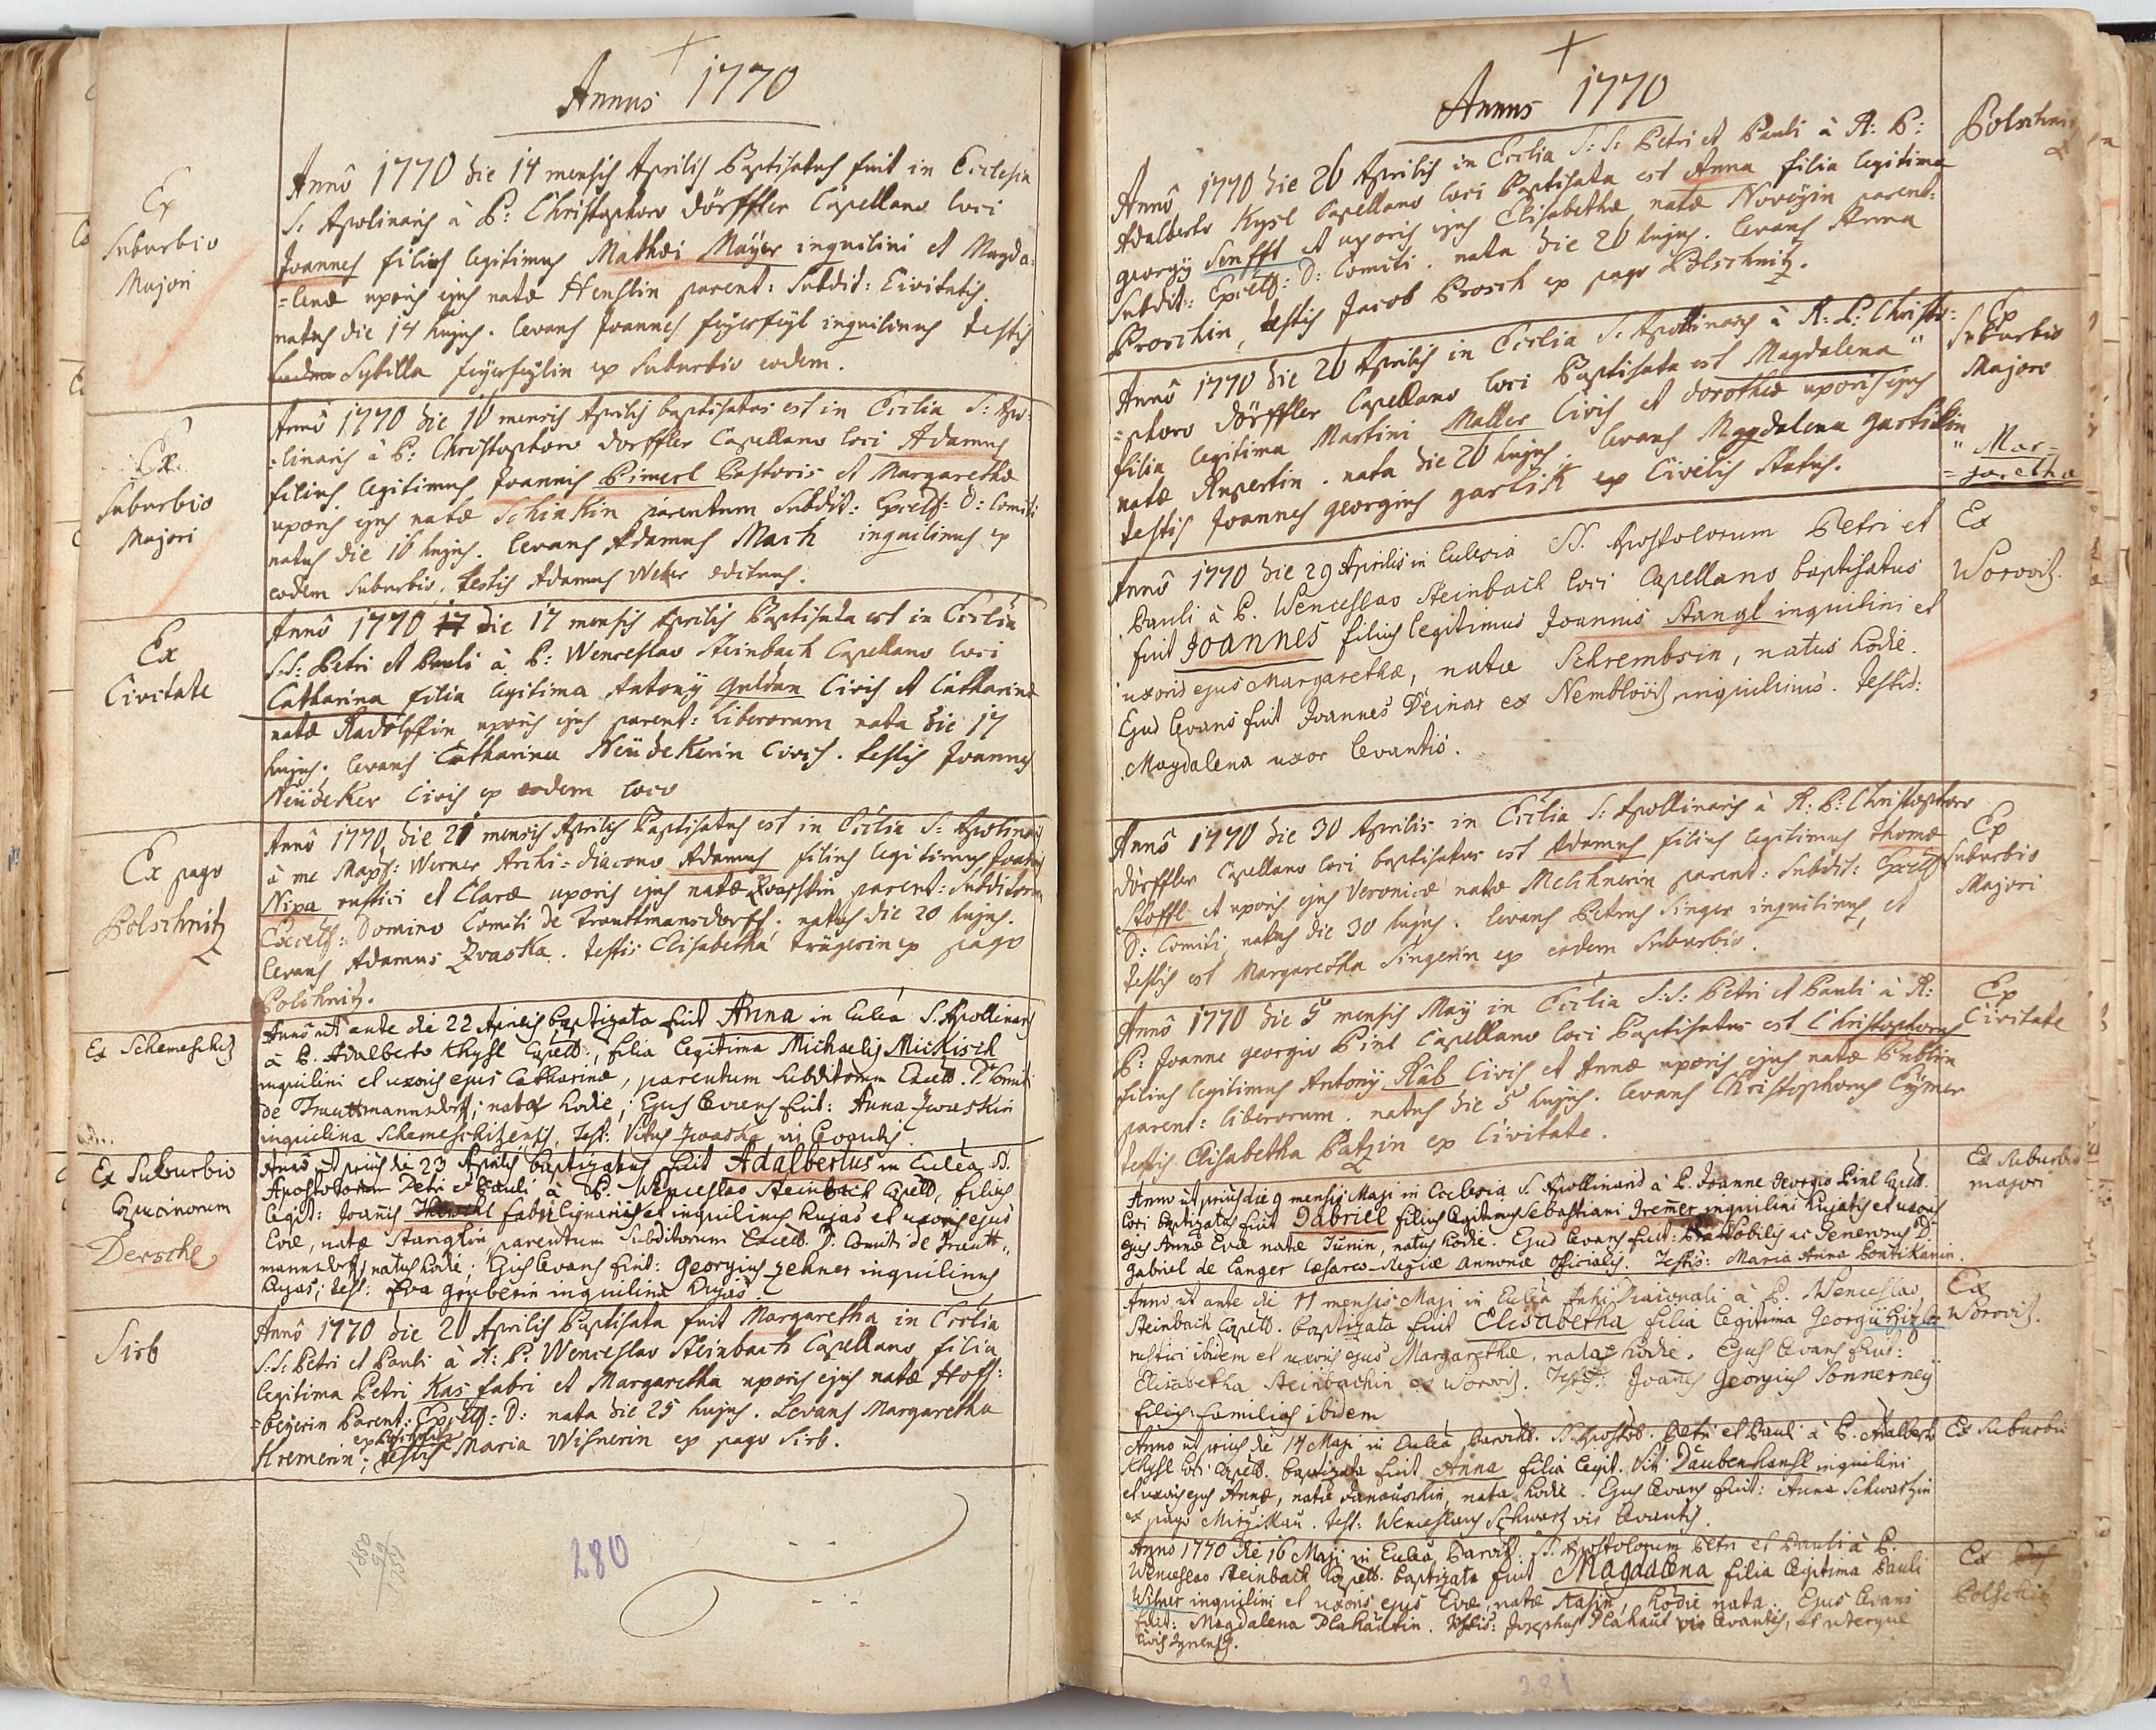 Annus 1770
Ex
Suburbio
Majori
Annô 1770 die 14 mensis Aprilis Baptisatus fuit in Ecclesia
S: Apolinaris à P: Christophoro Dörffler Capellano loci
Joannes filius legitimus Mathæi Mäyer inquilini et Magda=
=lenæ uxoris ejus natæ Henslin parent: Subdit: Civitatis.
natus die 14 hujus. levans Joannes feÿerfeÿl inquilinus testis
Sybilla feÿerfeÿlin ex suburbio eodem.
Ex
Suburbio
Majori
Annô 1770 die 16 mensis Aprilis baptisatus est in Ecclia S: Apo=
=linaris à P: Christophoro Dorffler Capellano loci Adamus
filius legitimus Joannis Pimerl Pastoris et Margarethæ
uxoris ejus natæ Schinkin parentum Subdit: Excells: D: Comiti
natus die 16 hujus. levans Adamus March inquilinus ex
eodem suburbio, testis Adamus Weker ædituus.
Ex
Civitate
Annô 1770 17 die 17 mensis Aprilis Baptisata est in Ecclia
S.S: Petri et Pauli à P: Wenceslao Steinbach Capellano loci
Catharina filia legitima Antonÿ Guldan Civis et Catharinæ
natæ Radolffin uxoris ejus parent: liberorum nata die 17
hujus. levans Catharina Neüdekerin Civis. testis Joannes
Neüdeker Civis ex eodem loco
Ex pago
Polschnitz
Annô 1770 die 21 mensis Aprilis Baptisatus est in Ecclia S: Apolinaris
à me Maxs: Werner Archi=diacono Adamus filius legitimus Joannis
Nixa rustici et Claræ uxoris ejus natæ Zwasskin parent: Subditorum
Excells: Domino Comiti de Trauttmansdorff. natus die 20 hujus.
levans Adamus Zvaska. testis Elisabetha trägerin ex pago
Polschnitz.
Ex Schemeschitz
Annô ut ante die 22 Aprilis baptizata fuit Anna in Eccleâ S. Apollinaris
à P. Adalberto Khysl Capell:, filia legitima Michaelis Mickisch
inquilini et uxoris ejus Catharinæ, parentum subditorum Excell. D. Comiti
de Trauttmannsdorff; nata hodie; Ejus levans fuit: Anna Zwaskin
inquilina Schemeschitzensis, Test: Vitus Zwaska vir levantis.
Ex Suburbio
Capucinorum
Dersche
Annô ut prius die 23 Aprilis baptizatus fuit Adalbertus in Eccleâ SS.
Apostolorum Petri et Pauli à P. Wenceslao Steinbach Capell, filius
legit: Joannis fabri lignarii et inquilini hujas et uxoris ejus
Evæ, natæ Stanglin, parentum subditorum Excell. D. Comiti de Trautt=
mannsdorff, natus hodie; Ejus levans fuit: Georgius Zehner inquilinus
hujas; test: Eva Gruberin inquilina hujas.
Sirb
Annô 1770 die 26 Aprilis Baptisata fuit Margaretha in Ecclia
S.S: Petri et Pauli à R: P: Wenceslao Steinbach Capellano filia
legitima Petri Kas fabri et Margaretha uxoris ejus natæ Hoff:
=beÿerin Parent: Excells: D: nata die 25 hujus. Levans Margaretha
Kremerin; testis Maria Wisnerin ex pago Sirb.
280
Annus 1770
Polschnitz
Annô 1770 die 26 Aprilis in Ecclia S: S: Petri et Pauli à R: P:
Adalberto Kysl Capellano loci Baptisata est Anna filia legitima
georgÿ Senfft et uxoris ejus Elisabethæ natæ Novÿin parent:
Subdit: Excells: D: Comiti. nata die 26 hujus. levans Anna
Proschin, testis Jacob Prosch ex pago Polschnitz.
Ex
Suburbio
Majore
Annô 1770 die 26 Aprilis in Ecclia S: Apollinaris à R: P: Christo=
=phoro Dörffler Capellano loci Baptisata est Magdalena "
filia legitima Martini Maller Civis et dorotheæ uxoris ejus
natæ Rupertin. nata die 26 hujus. levans Magdalena gartikin
testis Joannes georgius gartisk ex Civilis status.
" Mar=
=garetha
Ex
Worowitz.
Annô 1770 die 29 Aprilis in Ecclesia SS. Apostolorum Petri et
Pauli à P. Wenceslao Steinbach loci Capellano baptisatus
fuit Joannes filius legitimus Joannis Stangl inquilini et
uxoris ejus Margarethæ, natæ Schrembsin, natus hodie.
Ejus levans fuit Joannes Deinar ex Nemblowitz inquilinus. Testis:
Magdalena uxor levantis.
Ex
Suburbio
Majori
Annô 1770 die 30 Aprilis in Ecclia S: Apollinaris à R: P: Christophoro
Dörffler Capellano loci baptisatus est Adamus filius legitimus thomæ
Stoffl et uxoris ejus Veronicæ natæ Melchnerin parent: Subdit: Excells
D: Comiti natus die 30 hujus. levans Petrus Singer inquilinus, et
testis est Margaretha Singerin ex eodem Suburbio.
Ex
Civitate
Annô 1770 die 5 mensis Maÿ in Ecclia S:S: Petri et Pauli à R:
P: Joanne georgio Pinl Capellano loci Baptisatus est Christophorus
filius legitimus Antonÿ Râb Civis et Annæ uxoris ejus natæ Publin
parent: liberorum. natus die 5 hujus. levans Christophorus Cÿmer
testis Elisabetha Patzin ex Civitate.
Ex Suburbio
majori
Anno ut prius die 9 mensis Maji in Ecclesia S. Apollinaris à P. Joanne Georgio Pinl Capell.
loci baptizatus fuit Gabriel filius legitimus Sebastiani Gremer inquilini hujatis et uxoris
ejus Annæ Evæ natæ Junin, natus hodie. Ejus levans fuit: Prænobilis ac Generosus D.
Gabriel de Langer Cæsareo-Regiæ Annonæ Officialis. Testis: Maria Anna Pontikanin.
Ex
Worowitz.
Anno ut ante die 11 mensis Maji in Eccleâ Archi Diaconali à P. Wenceslao
Steinbach Capell. baptizata fuit Elisabetha filia legitima Georgii Hizler
rustici ibidem et uxoris ejus Margarethæ, nata hodie. Ejus levans fuit:
Elisabetha Steinbachin ex Worowitz. Testis: Joannes Georgius Sonnerneÿ
filius familias ibidem
Ex Suburbio
Anno ut prius die 14 Maji in Eccleâ Parochl. SS. Apostol. Petri et Pauli à P. Adalberto
Khysl loci Capell. baptizata fuit Anna filia legit. Viti Daubenhansl inquilini
et uxoris ejus Annæ, natæ Janauschin, nata hodie. Ejus levans fuit: Anna Schwartzin
ex pago Mirzikau. Test: Wenceslaus Schwartz vir levantis.
Ex
Polschitz
Anno 1770 die 16 Maji in Eccleâ Paroch. SS. Apostolorum Petri et Pauli à P.
Wenceslao Steinbach Capell. baptizata fuit Magdalena filia legitima Pauli
Wisner inquilini et uxoris ejus Evæ, natæ Kasin, hodie nata. Ejus levans
fuit: Magdalena Plahautin. Testis: Josephus Plahaut vir levantis, et uterque
281